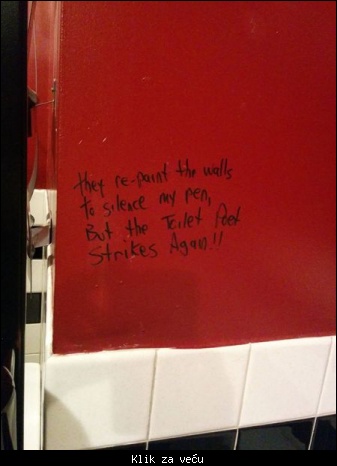 they re-paint the walls
To silence my pen,
But the Toilet Poet
Strikes Again!!
Klik za veću